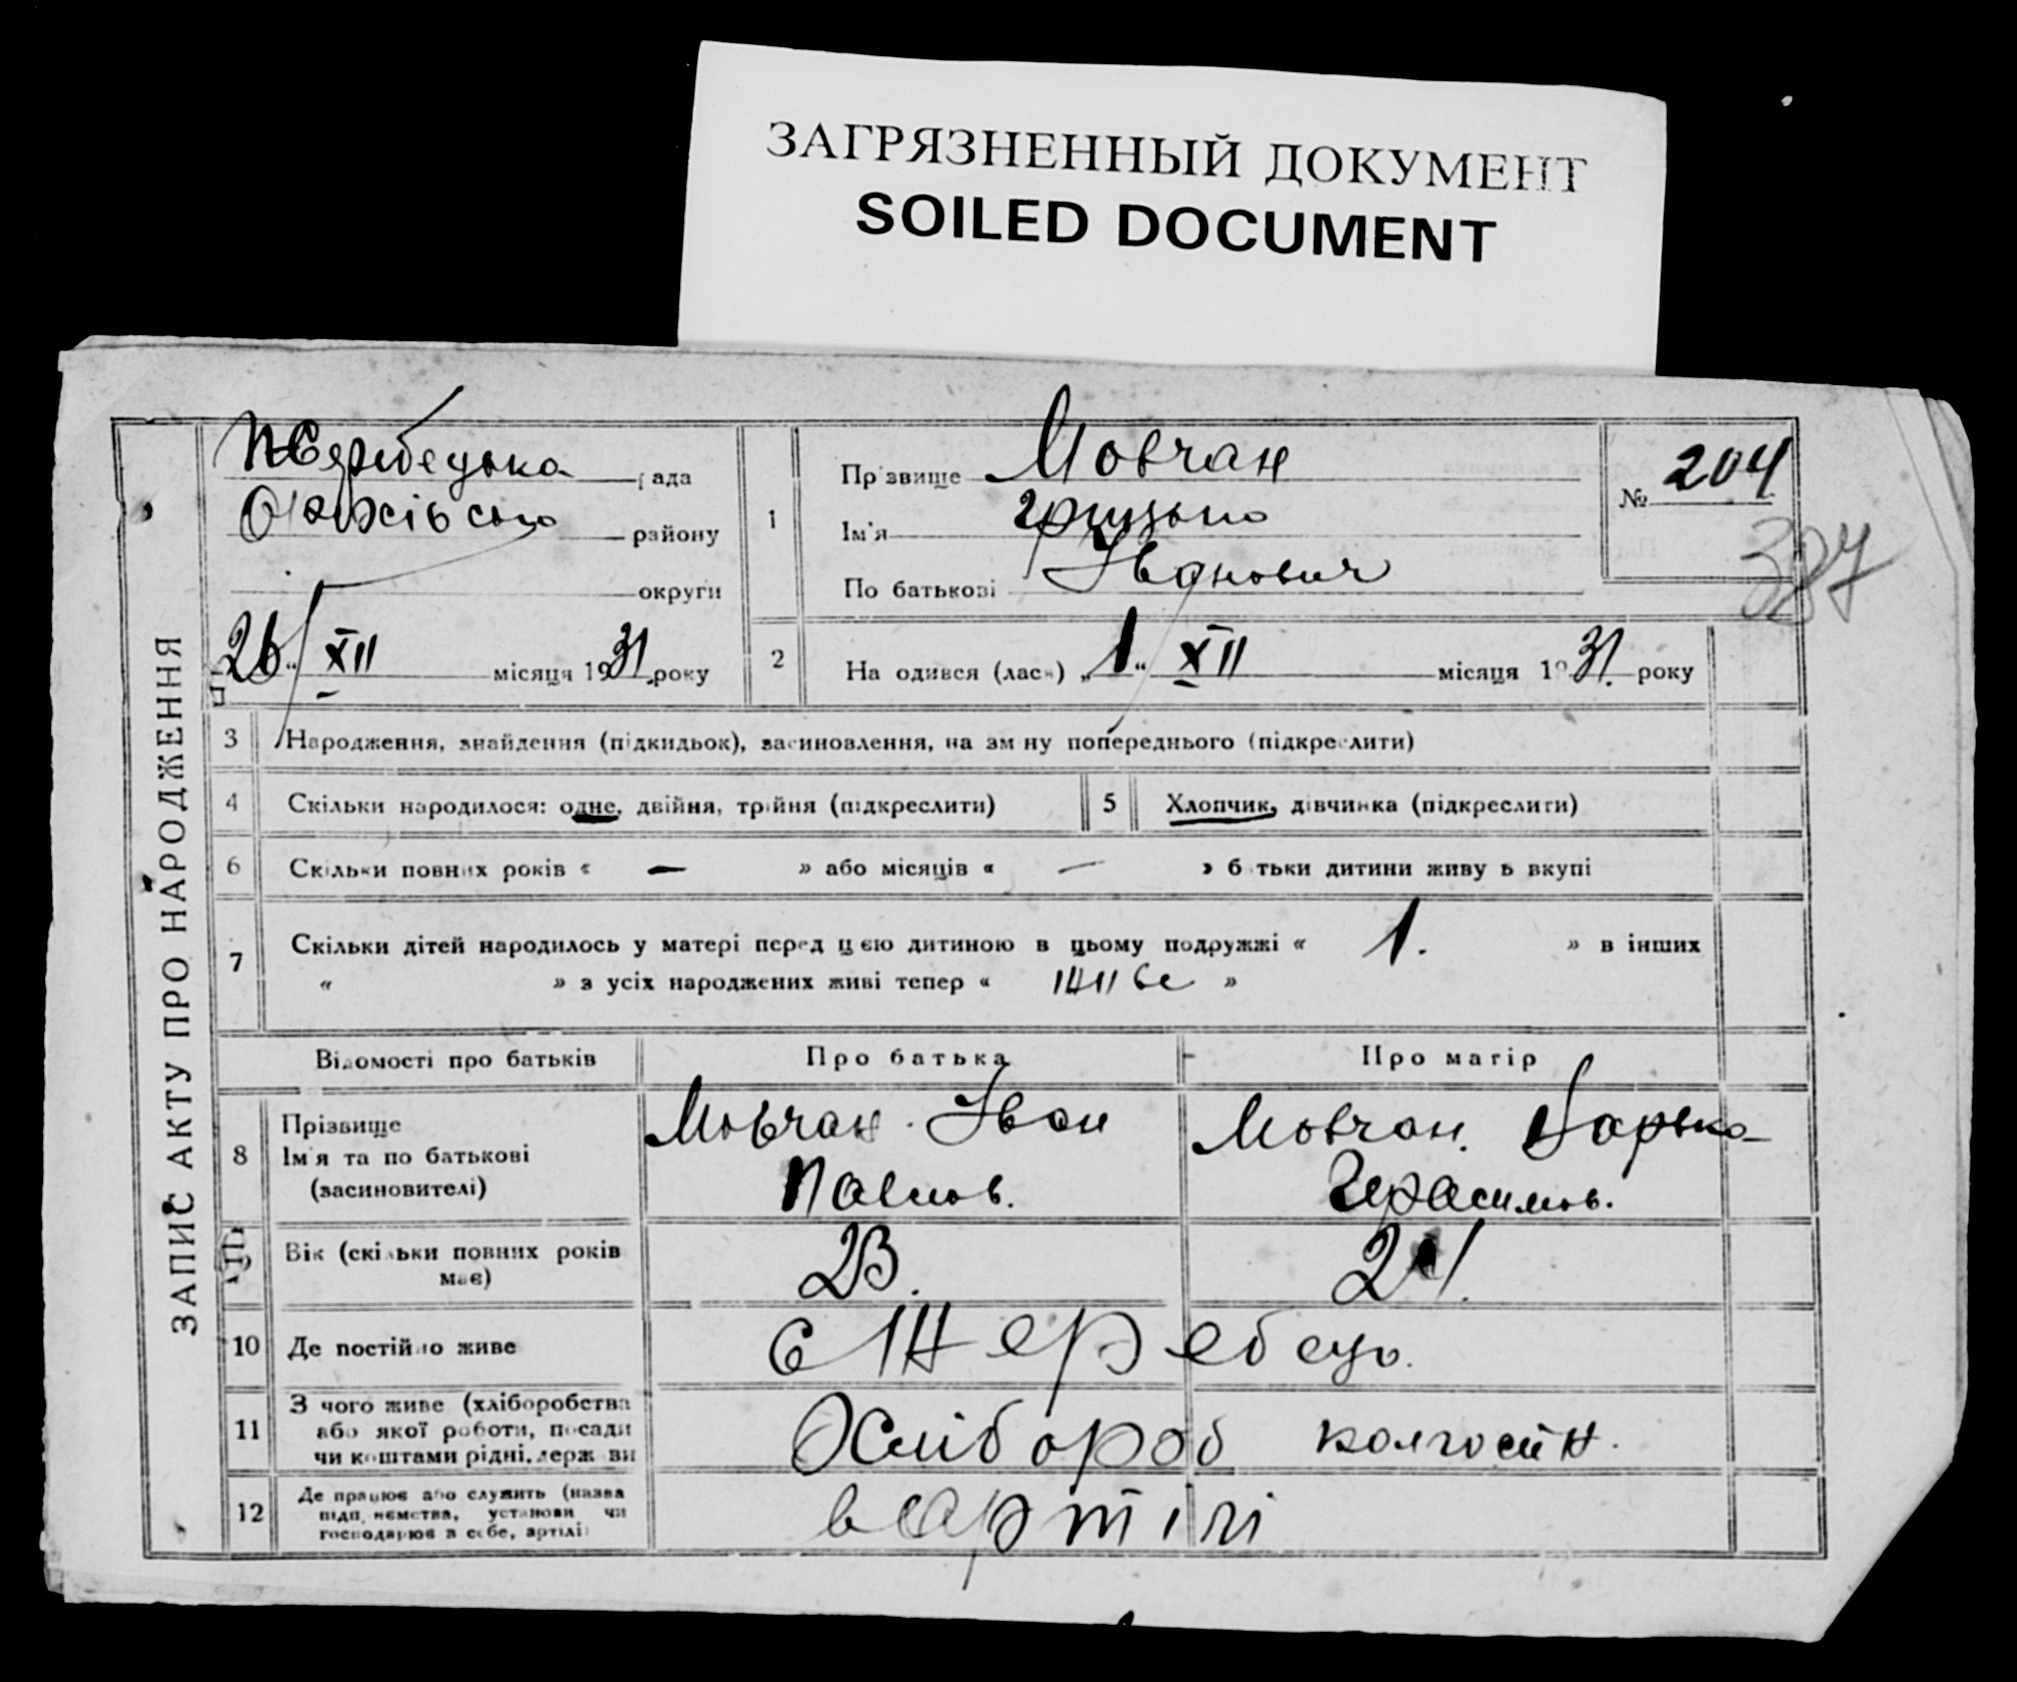 ЗАГРЯЗНЕННЫЙ ДОКУМЕНТ
SOILED DOCUMENT
ЗАПИС АКТУ ПРО НАРОДЖЕННЯ
Жеребецька рада
Оріхівсько району
округи
26 " XII місяця 1931 року
1
Прізвище Мовчан
Ім'я Грицько
По батькові Іванович
№ 204
387
2 На одився (лась) „ 1 " XII місяця 1931. року
3 Народження, знайдення (підкидьок), засиновлення, на зміну попереднього (підкреслити)
4 Скільки народилося: одне, двійня, трійня (підкреслити)
5 Хлопчик, дівчинка (підкреслити)
6 Скільки повних років « — » або місяців « — » батьки дитини живуть вкупі
7 Скільки дітей народилось у матері перед цією дитиною в цьому подружжі « 1. » в інших
« » з усіх народжених живі тепер « »
Відомості про батьків Про батька Про матір
8 Прізвище
Ім'я та по батькові
(засиновителі)
Мовчан Іван
Павлов.
Мовчан. Дарька
Герасимов.
Вік (скільки повних років має) 23. 21.
10 Де постійно живе с Жеребець.
11 З чого живе (хліборобства
або якої роботи, посади
чи коштами рідні, держави
Хлібороб колгосп
12 Де працює або служить (назва
підприємства, установи чи
господарює в себе, артілі)
в артілі